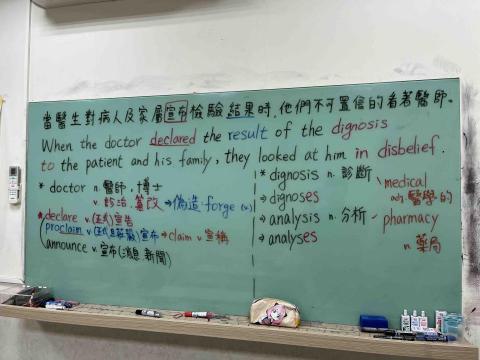 當醫生對病人及家屬宣布檢驗結果時，他們不可置信的看著醫師。
When the doctor declared the result of the dignosis
to the patient and his family, they looked at him in disbelief.
* doctor n. 醫師, 博士
v. 診治, 篡改 → 偽造: forge (v.)
* declare v. (正式)宣告
proclaim v. (正式且莊嚴)宣布 → claim v. 宣稱
announce v. 宣布(消息.新聞)
* dignosis n. 診斷
→ dignoses
→ analysis n. 分析
→ analyses
medical
adj. 醫學的
pharmacy
n. 藥局